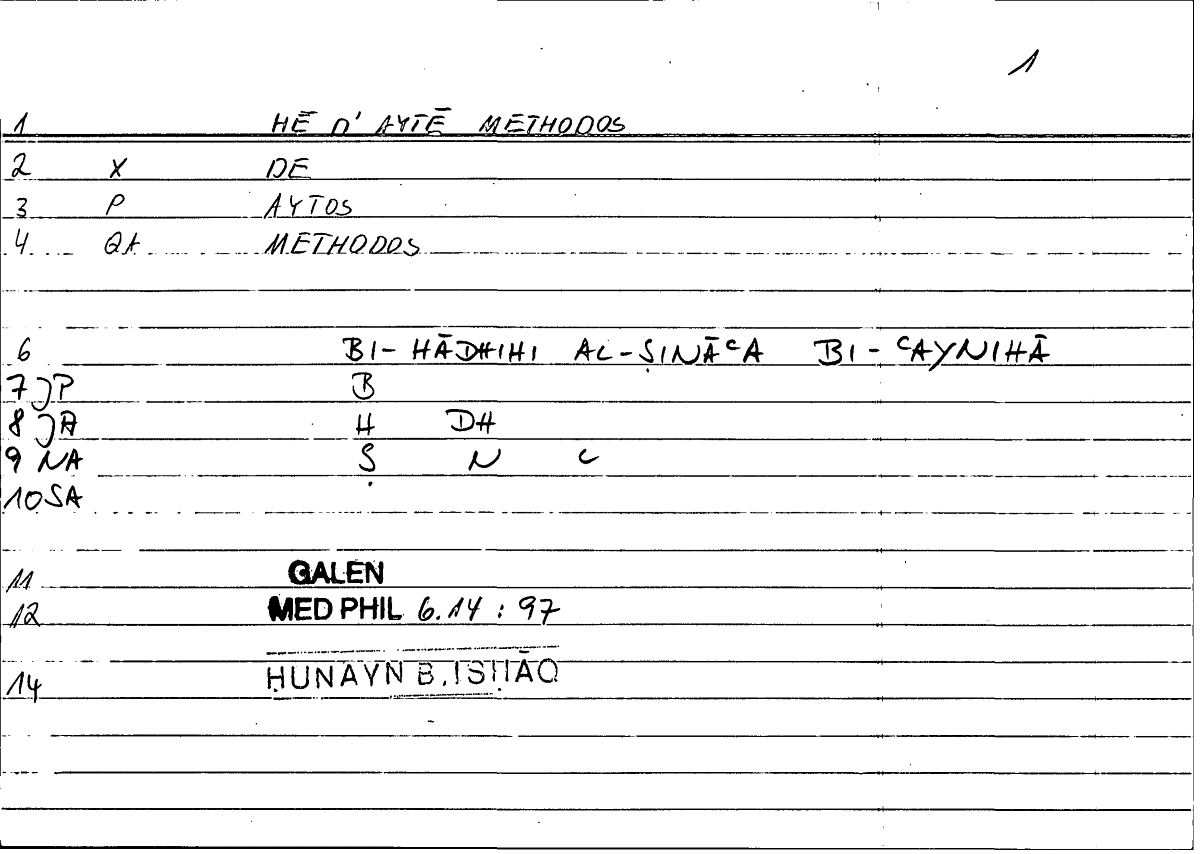 1
1 HĒ D' AYTĒ METHODOS
2 X DE
3 P AYTOS
4 QA METHODOS
6 BI- HĀDHIHI AL-ṢINĀʿA BI-ʿAYNIHĀ
7 JP B
8 JA H DH
9 NA Ṣ N ʿ
10 SA
11 GALEN
12 MED PHIL 6.14 : 97
14 ḤUNAYN B. ISḤĀQ